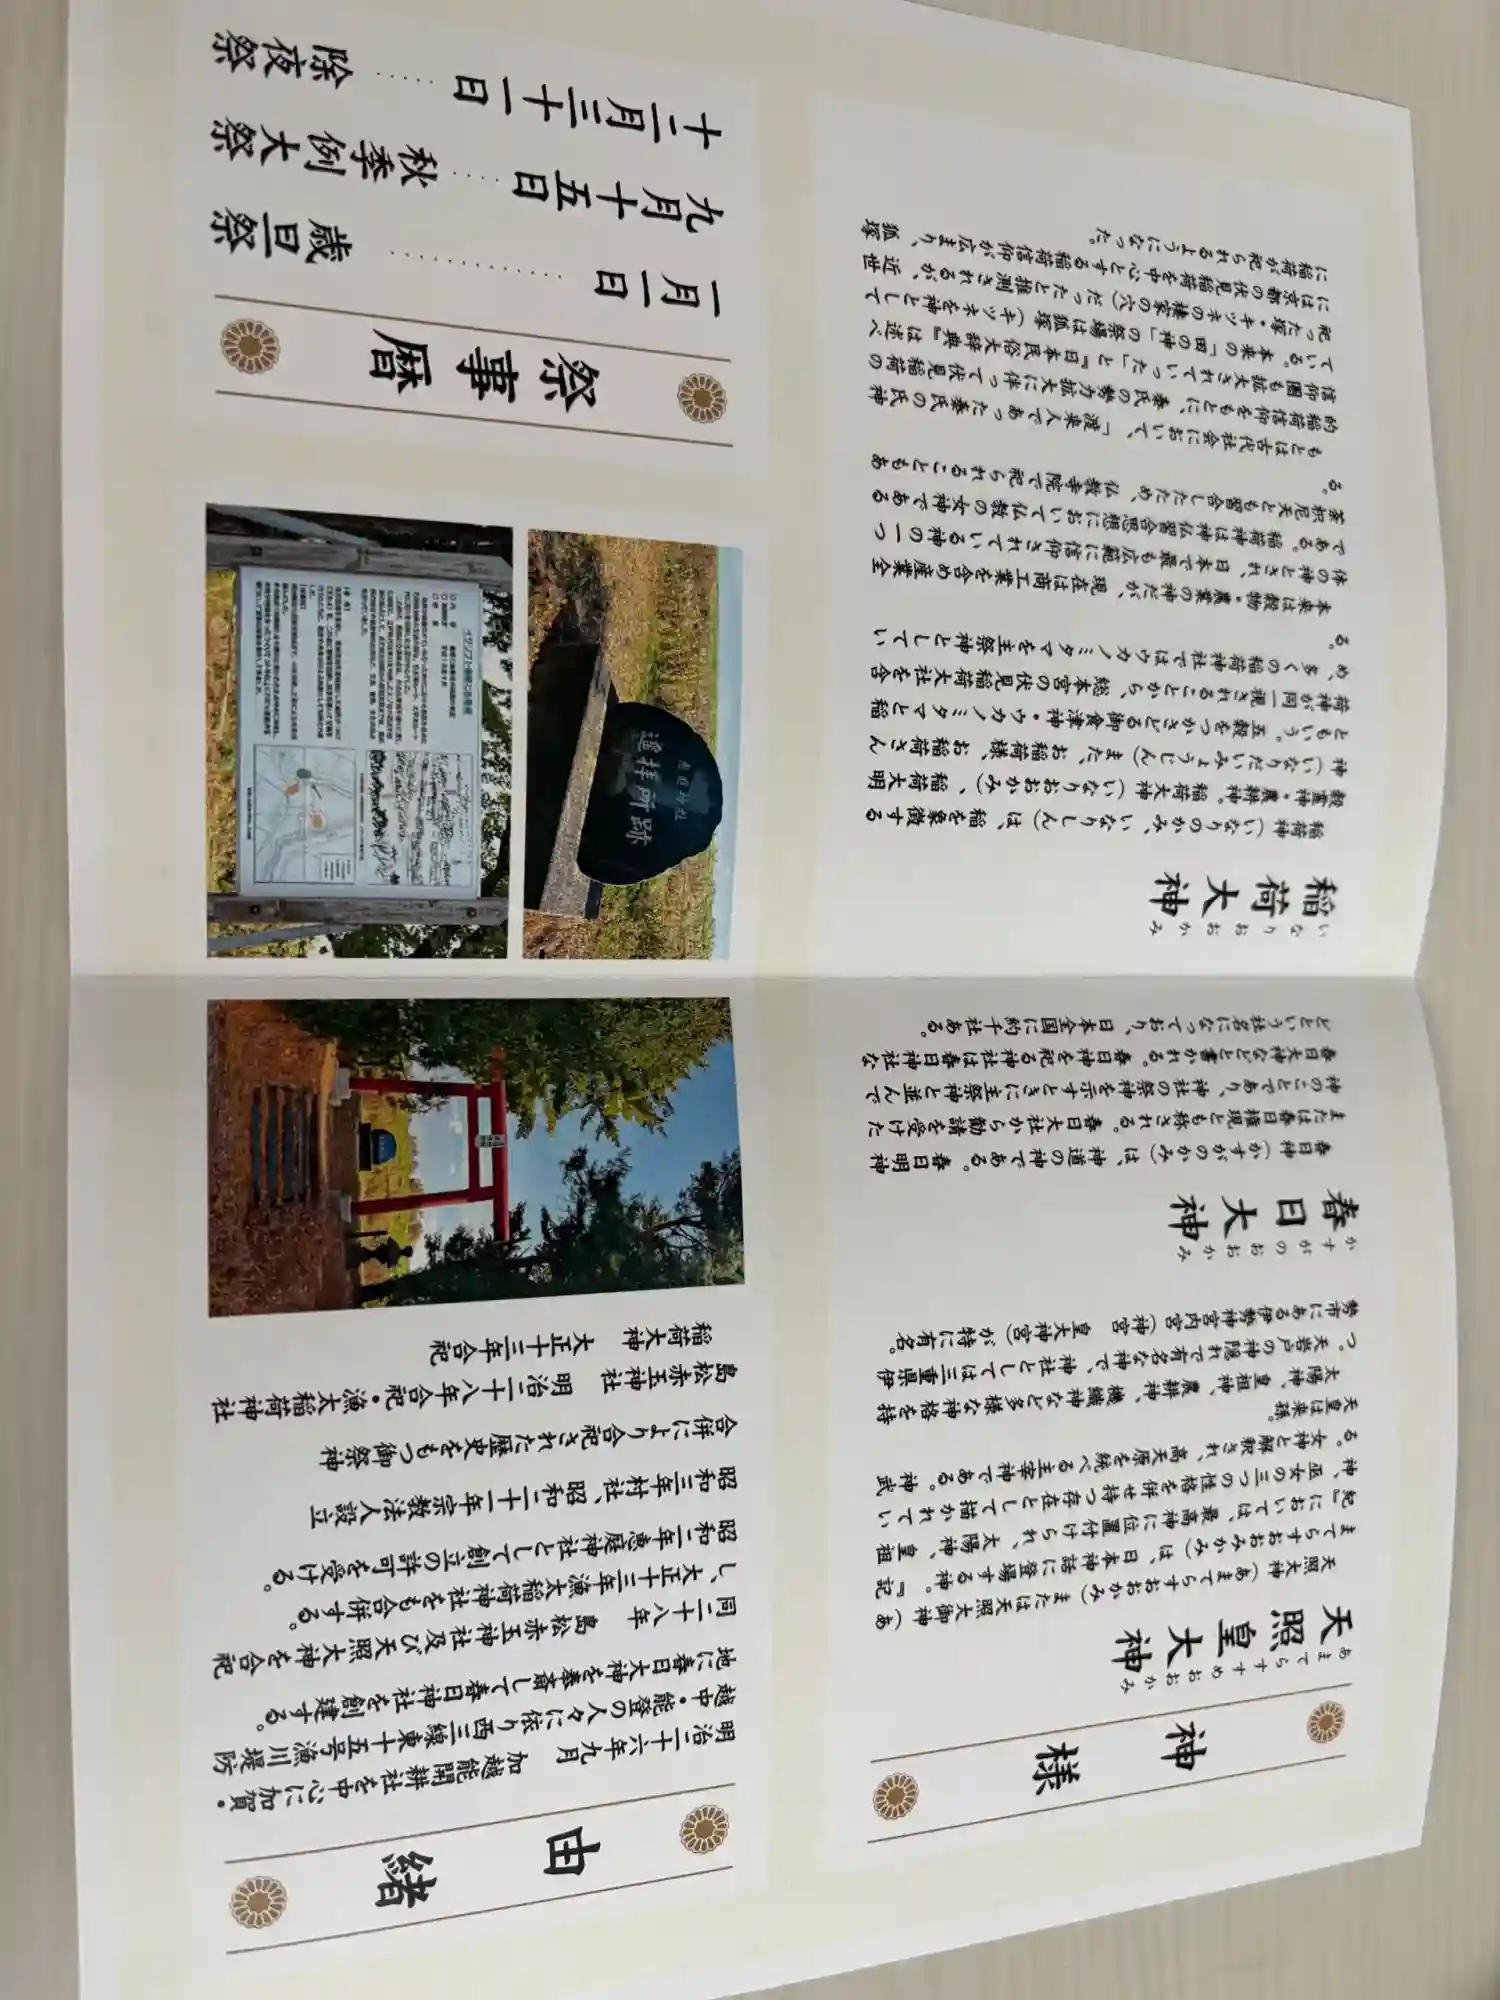 神様
天照皇大神
あまてらすすめおおかみ
天照大神（あまてらすおおかみ）または天照大御神（あ
まてらすおおみかみ）は、日本神話に登場する神。『記
紀』においては、最高神に位置付けられ、太陽神、皇祖
神、巫女の三つの性格を併せ持つ存在として描かれてい
る。女神と解釈され、高天原を統べる主宰神である。神武
天皇は来孫。
太陽神、皇祖神、農耕神、機織神など多様な神格を持
つ。天岩戸の神隠れで有名な神で、神社としては三重県伊
勢市にある伊勢神宮内宮（神宮　皇大神宮）が特に有名。
春日大神
かすがのおおかみ
春日神（かすがのかみ）は、神道の神である。春日明神
または春日権現とも称される。春日大社から勧請を受けた
神のことであり、神社の祭神を示すときに主祭神と並んで
春日大神などと書かれる。春日神を祀る神社は春日神社な
どという社名になっており、日本全国に約千社ある。
稲荷大神
いなりおおかみ
稲荷神（いなりのかみ、いなりしん）は、稲を象徴する
穀霊神・農耕神。稲荷大神（いなりおおかみ）、稲荷大明
神（いなりだいみょうじん）また、お稲荷様、お稲荷さん
ともいう。五穀をつかさどる御食津神・ウカノミタマと稲
荷神が同一視されることから、総本宮の伏見稲荷大社を含
め、多くの稲荷神社ではウカノミタマを主祭神としてい
る。
本来は穀物・農業の神だが、現在は商工業を含め産業全
体の神とされ、日本で最も広範に信仰されている神の一つ
である。稲荷神は神仏習合思想において仏教の女神である
荼枳尼天とも習合したため、仏教寺院で祀られることもあ
る。
もとは古代社会において、「渡来人であった秦氏の氏神
的稲荷信仰をもとに、秦氏の勢力拡大に伴って伏見稲荷の
信仰圏も拡大されていった」と『日本民俗大辞典』は述べ
ている。本来の「田の神」の祭場は狐塚（キツネを神として
祀った塚・キツネの棲家の穴）だったと推測されるが、近世
には京都の伏見稲荷を中心とする稲荷信仰が広まり、狐塚
に稲荷が祀られるようになった。
由緒
明治二十六年九月　加越能開耕社を中心に加賀・
越中・能登の人々に依り西三線東十五号漁川堤防
地に春日大神を奉斎して春日神社を創建する。
同二十八年　島松赤玉神社及び天照大神を合祀
し、大正十三年漁太稲荷神社をも合併する。
昭和二年恵庭神社として創立の許可を受ける。
昭和三年村社、昭和二十一年宗教法人設立
合併により合祀された歴史をもつ御祭神
島松赤玉神社　明治二十八年合祀・漁太稲荷神社
稲荷大神　大正十三年合祀
春日神社
遙拝所跡
祭事暦
一月一日……歳旦祭
九月十五日……秋季例大祭
十二月三十一日……除夜祭